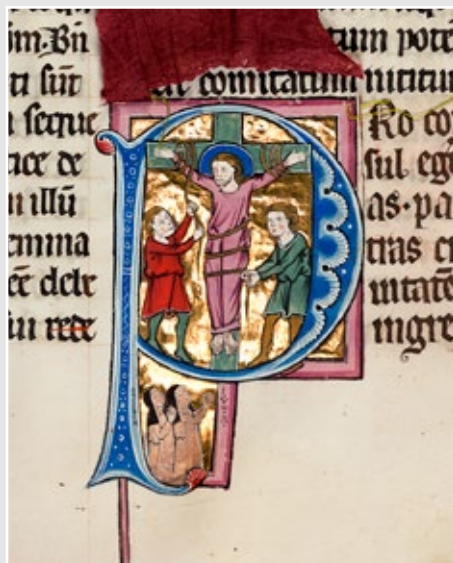 ti sūt
seque
ice de
illū
emina
ēē dele
rede
tum pote
comitatum nititur
PRo co
sul ege
as. pa
tras ci
uitatē
ingre